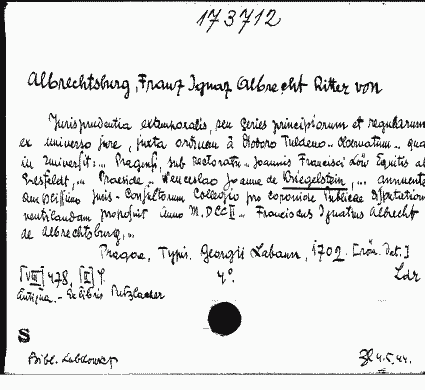 173712
Albrechtsburg, Franz Ignaz Albrecht Ritter von
Jurisprudentia extemporalis, seu series principiorum et regularum
ex universo jure, juxta ordinem à Diodoro Tuldeno.. observatum.. qua
in Universit:.. Pragensi, sub rectoratu.. Joannis Francisci Löw Equitis ab
Erlesfeldt,.. Praeside.. Wenceslao Joanne de Kriegelstein,.. annuente
amplissimo Juris-Consultorum Collegio pro coronide Publicae disputationi
ventilandam proposuit Anno M.DCCII.. Franciscus Ignatius Albrecht
de Albrechtsburg,..
Pragae, Typis Georgii Labaun, 1702. [röm. Dat.]
[VIII] 478, [II] S. 4°. Ldr
Antiqua.- Exlibris Putzlacher
S
Bibl. Lobkowitz 4.5.44.